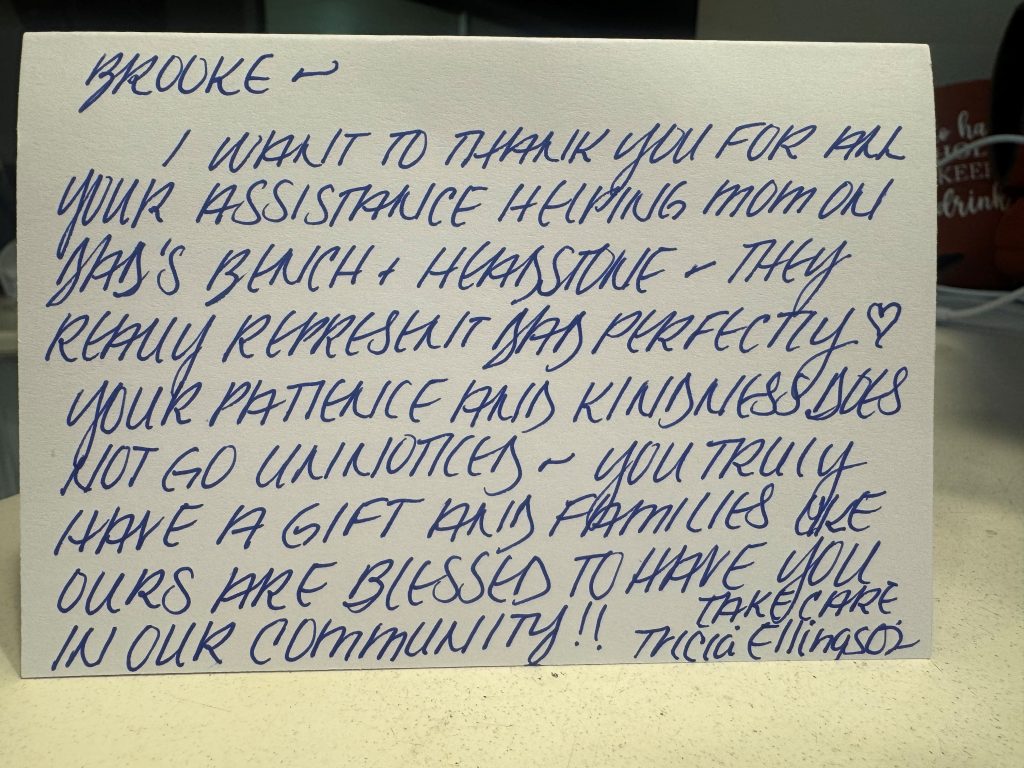 BROOKE ~
I WANT TO THANK YOU FOR ALL
YOUR ASSISTANCE HELPING MOM ON
DAD'S BENCH + HEADSTONE ~ THEY
REALLY REPRESENT DAD PERFECTLY ♡
YOUR PATIENCE AND KINDNESS DOES
NOT GO UNNOTICED ~ YOU TRULY
HAVE A GIFT AND FAMILIES LIKE
OURS ARE BLESSED TO HAVE YOU
IN OUR COMMUNITY!!
TAKE CARE
Tricia Ellingson
drink